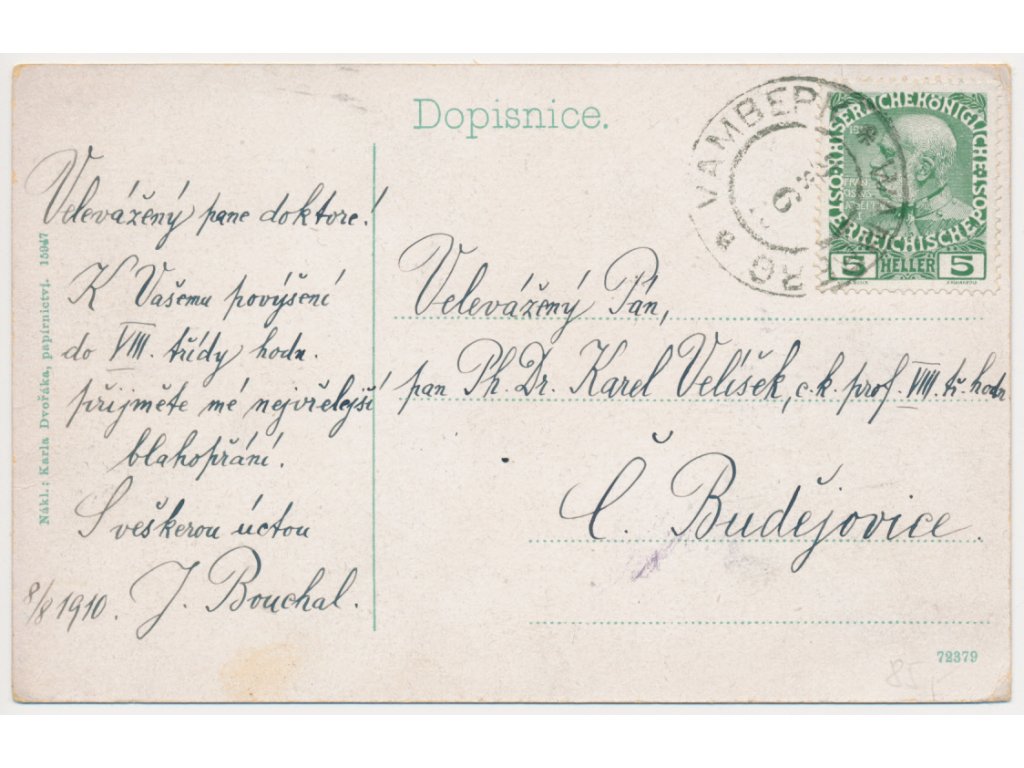 Dopisnice.
Velevážený pane doktore!
K Vašemu povýšení
do VIII. třídy hodn.
přijměte mé nejvřelejší
blahopřání.
S veškerou úctou
J. Bouchal.
8/8 1910.
Velevážený Pán,
pan Ph. Dr. Karel Velíšek, c. k. prof. VIII. tř. hodn
Č. Budějovice.
Nákl.: Karla Dvořáka, papírnictví. 15947
VAMBERK
KAISERLICHE KÖNIGLICHE
ÖSTERREICHISCHE
5 HELLER 5
72379
85,-